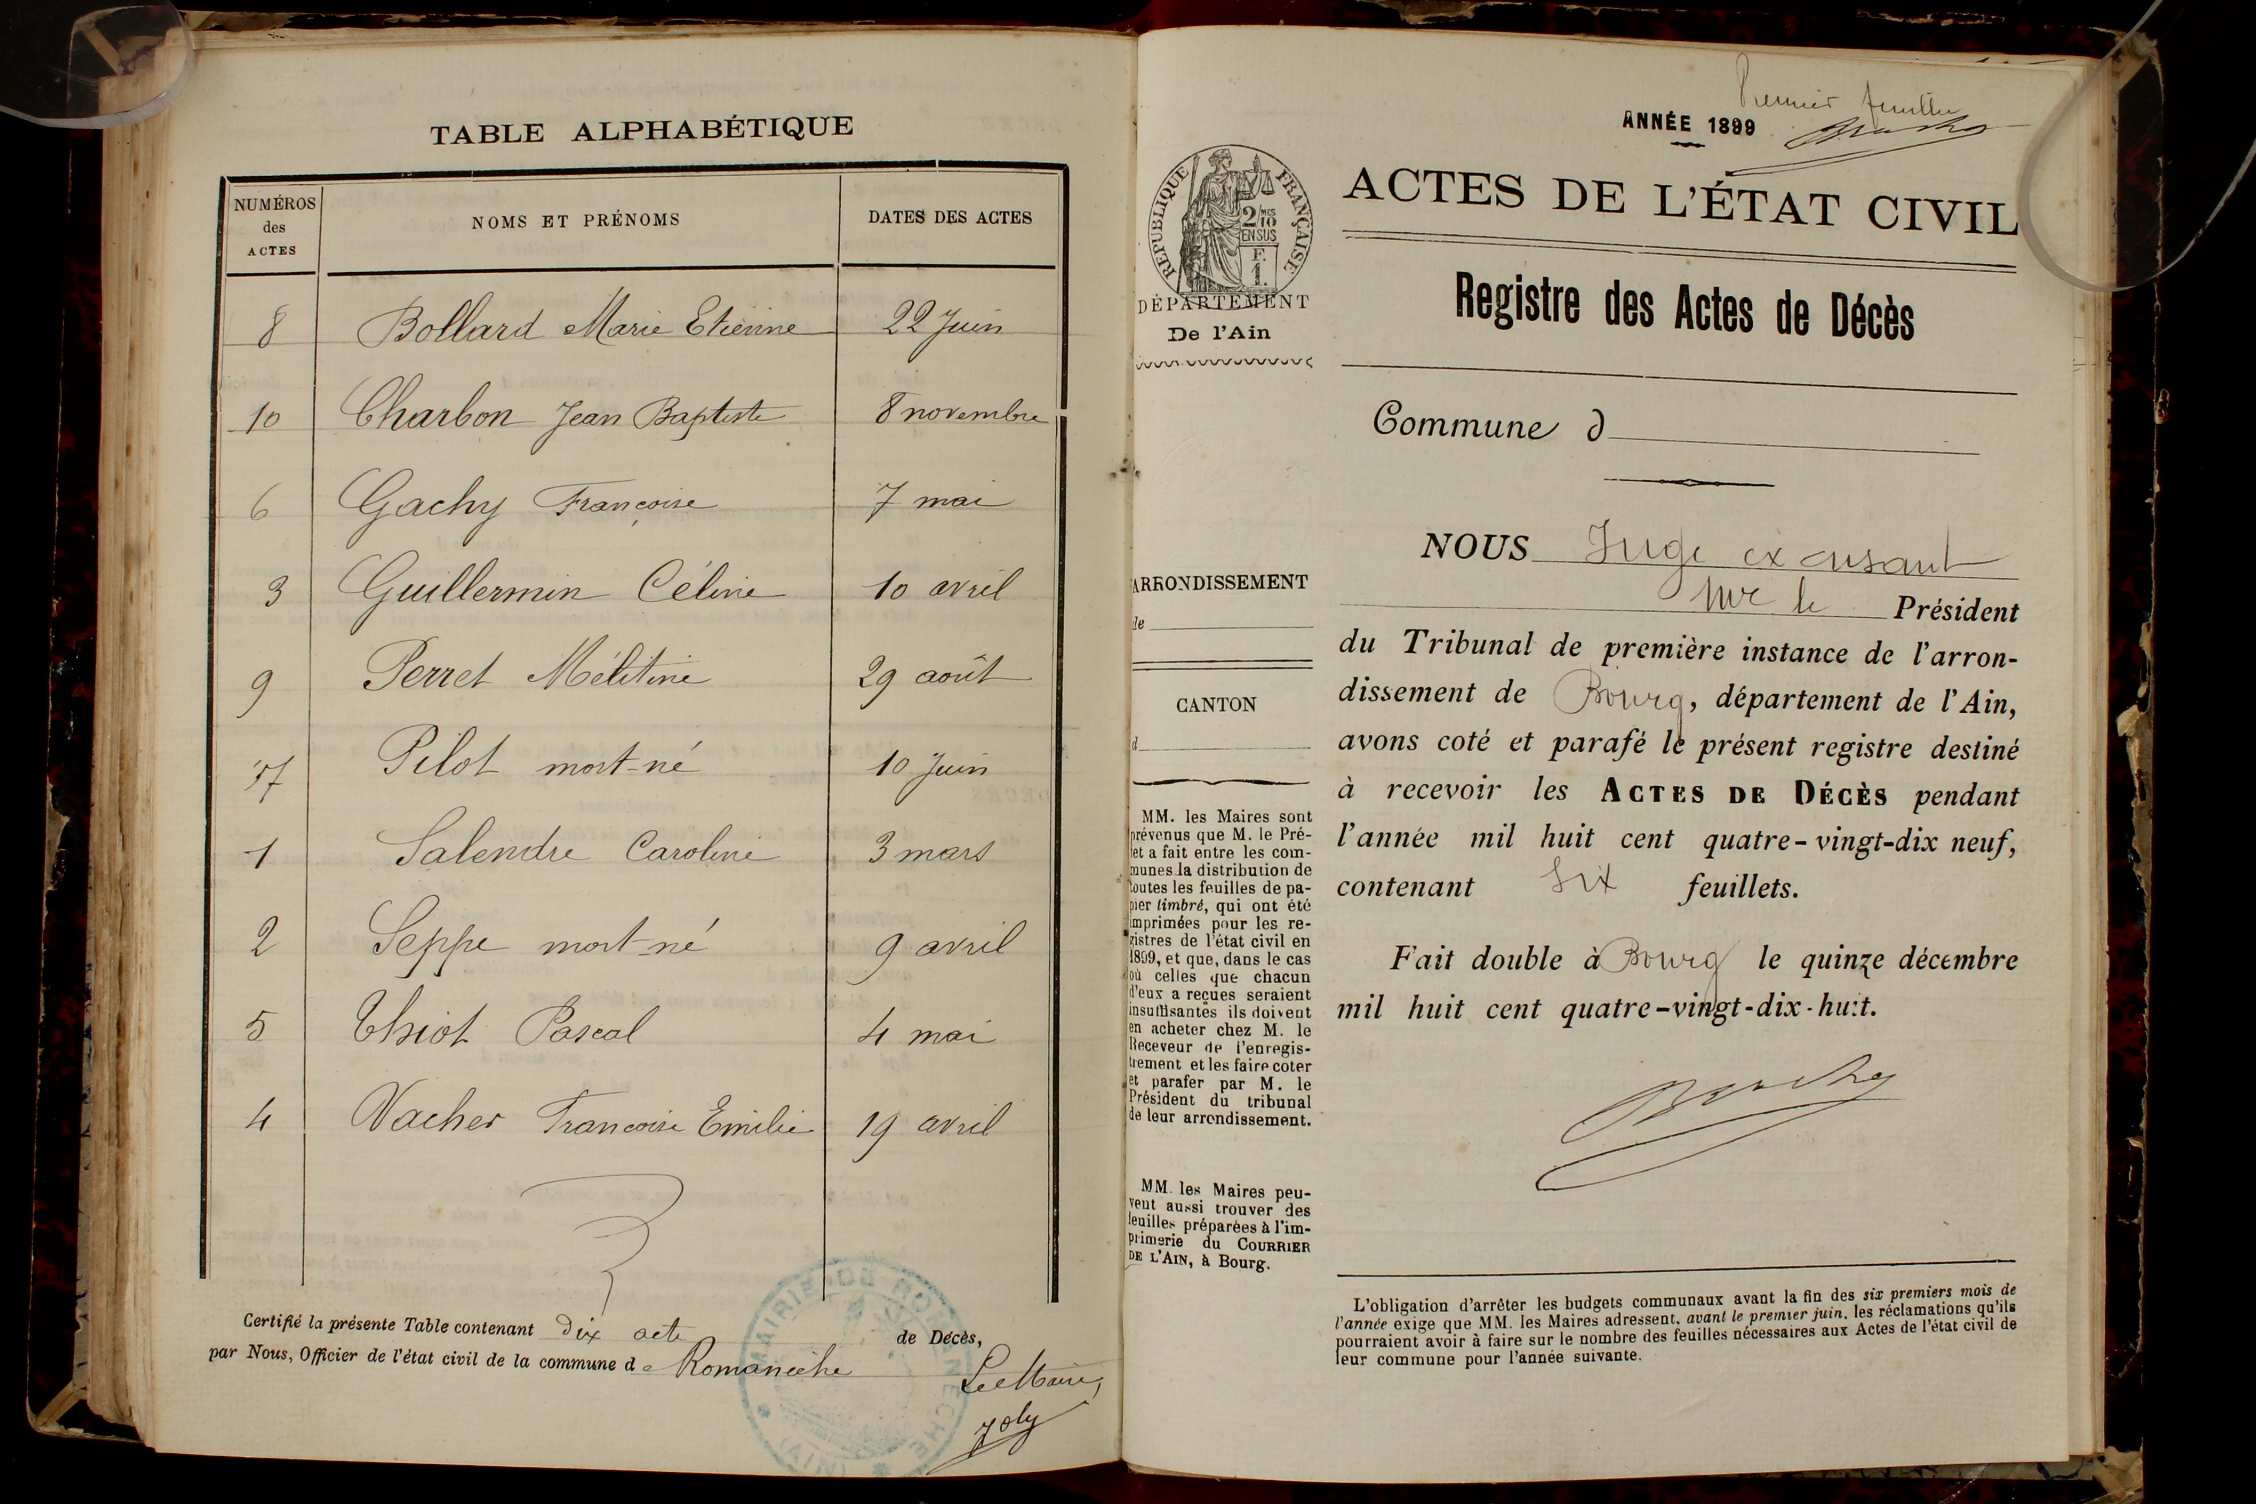 TABLE ALPHABÉTIQUE
NUMÉROS des ACTES | NOMS ET PRÉNOMS | DATES DES ACTES
8 Bollard Marie Etienne 22 Juin
10 Charbon Jean Baptiste 8 novembre
6 Gachy Françoise 7 mai
3 Guillermin Céline 10 avril
9 Perret Mélitine 29 août
7 Pilot mort-né 10 Juin
1 Salendre Caroline 3 mars
2 Seppe mort-né 9 avril
5 Thiot Pascal 4 mai
4 Vacher Francoise Emilie 19 avril
Certifié la présente Table contenant dix acte de Décès,
par Nous, Officier de l'état civil de la commune de Romanèche
Le Maire,
Joly
MAIRIE DE ROMANECHE
(AIN)
Premier feuillet
ANNÉE 1899
RÉPUBLIQUE FRANÇAISE
2/10mes
EN SUS
F.
1.
ACTES DE L'ÉTAT CIVIL
DÉPARTEMENT
De l'Ain
Registre des Actes de Décès
Commune d
ARRONDISSEMENT
de
CANTON
d
MM. les Maires sont
prévenus que M. le Pré-
fet a fait entre les com-
munes la distribution de
toutes les feuilles de pa-
pier timbré, qui ont été
imprimées pour les re-
gistres de l'état civil en
1899, et que, dans le cas
où celles que chacun
d'eux a reçues seraient
insuffisantes ils doivent
en acheter chez M. le
Receveur de l'enregis-
trement et les faire coter
et parafer par M. le
Président du tribunal
de leur arrondissement.
MM. les Maires peu-
vent aussi trouver des
feuilles préparées à l'im-
primerie du COURRIER
DE L'AIN, à Bourg.
NOUS Juge ex cusant
Mr le Président
du Tribunal de première instance de l'arron-
dissement de Bourg, département de l'Ain,
avons coté et parafé le présent registre destiné
à recevoir les ACTES DE DÉCÈS pendant
l'année mil huit cent quatre-vingt-dix neuf,
contenant Six feuillets.
Fait double à Bourg le quinze décembre
mil huit cent quatre-vingt-dix-huit.
L'obligation d'arrêter les budgets communaux avant la fin des six premiers mois de
l'année exige que MM. les Maires adressent, avant le premier juin, les réclamations qu'ils
pourraient avoir à faire sur le nombre des feuilles nécessaires aux Actes de l'état civil de
leur commune pour l'année suivante.